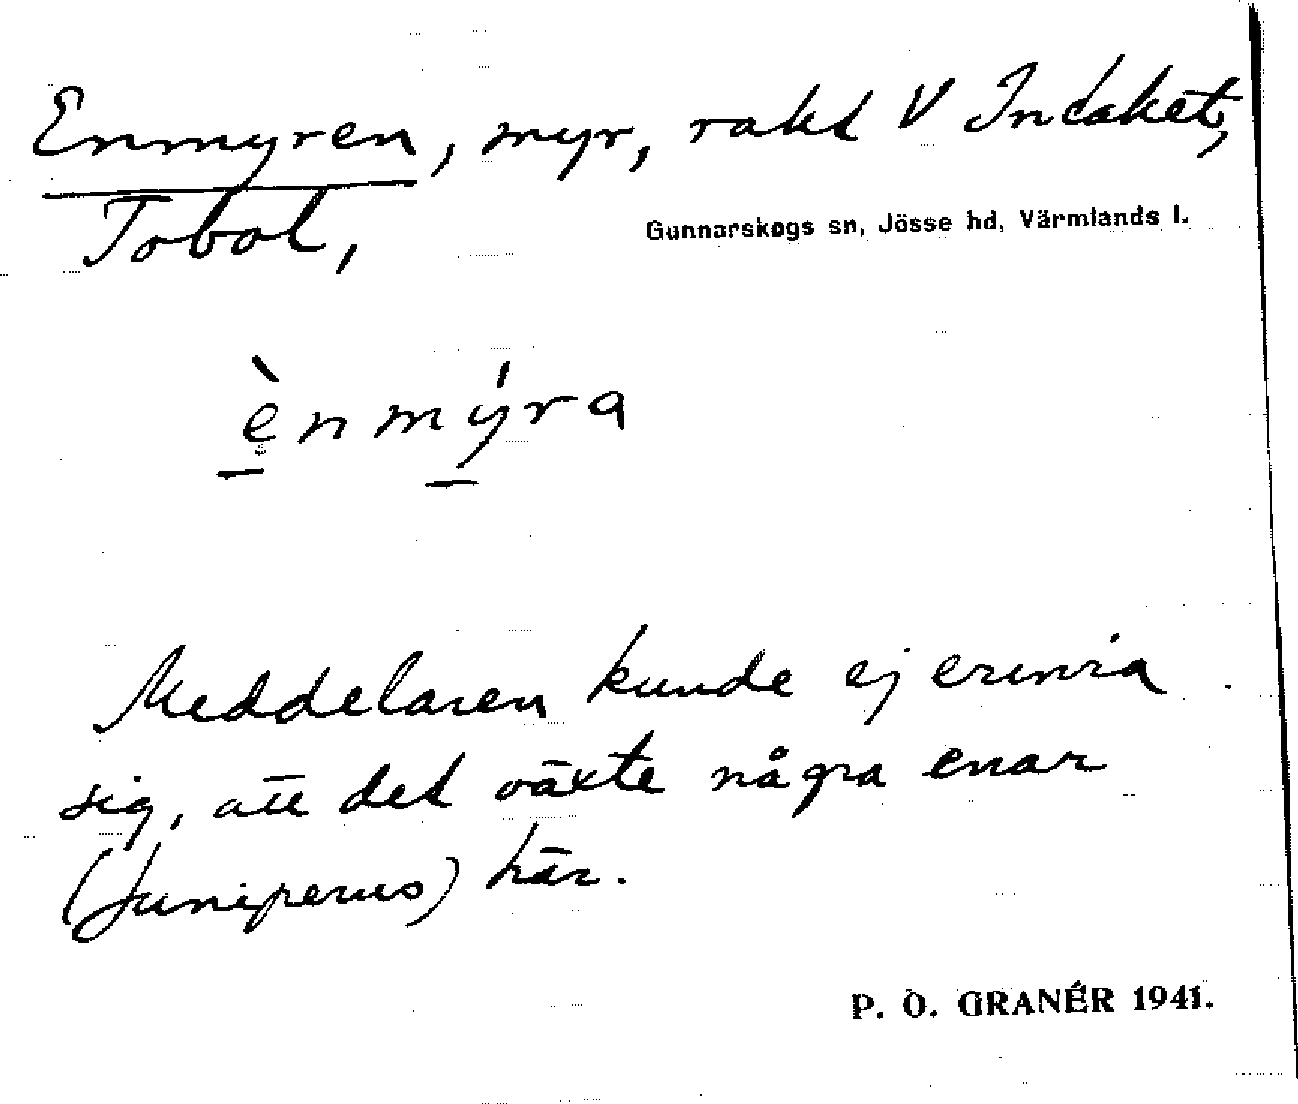 Enmyren, myr, rakt V Indaket,
Tobol,
Gunnarskogs sn, Jösse hd, Värmlands l.
ènmýra
Meddelaren kunde ej erinra
sig, att det växte några enar
(Juniperus) här.
P. O. GRANÉR 1941.